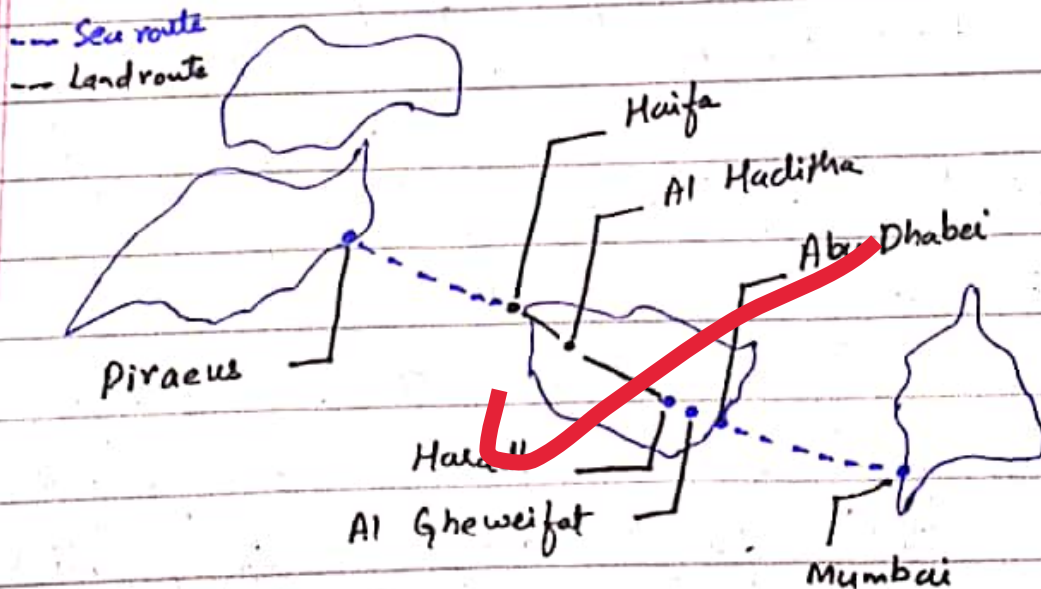 --- Sea route
--- Land route
Haifa
Al Haditha
Abu Dhabei
Piraeus
Al Gheweifat
Mumbai